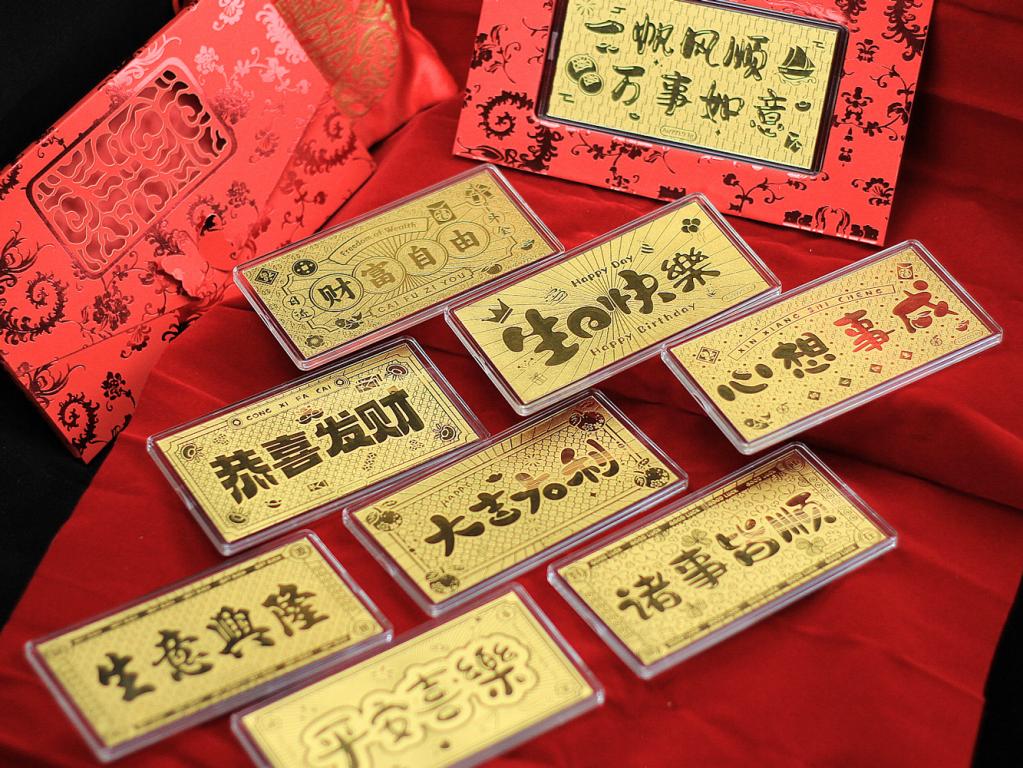 一帆风顺
万事如意
Freedom of Wealth
财富自由
CAI FU ZI YOU
日进
斗金
Happy Day
生日快樂
Happy Birthday
XIN XIANG SHI CHENG
心想事成
GONG XI FA CAI
恭喜发财
HAPPY
大吉大利
诸事皆顺
生意興隆
平安喜樂